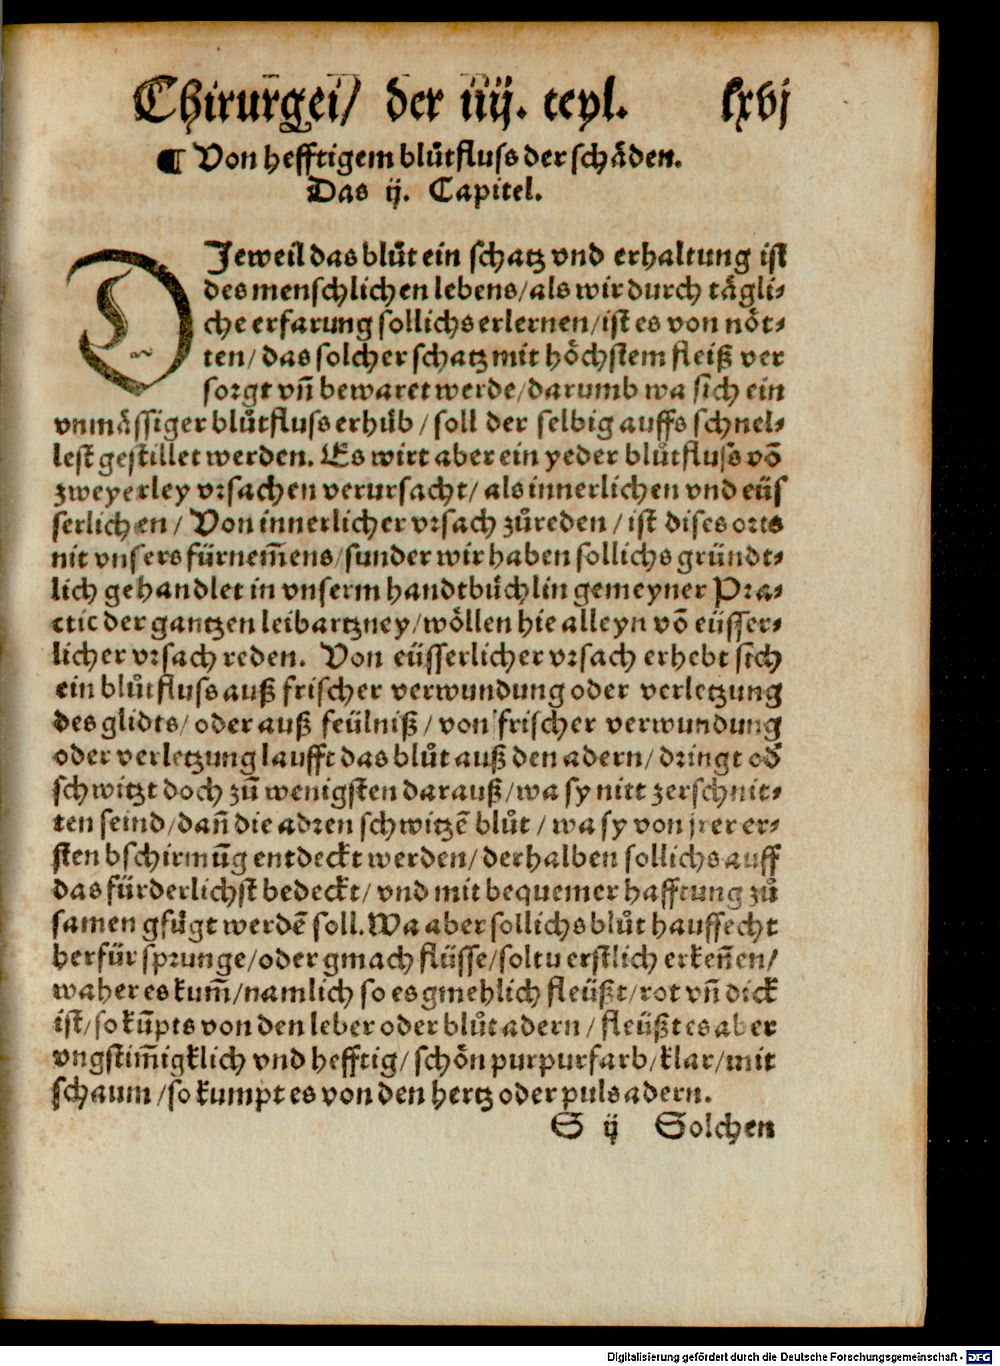 Chirurgei/ der iiij. teyl. lxvj
¶ Von hefftigem blůtfluss der schäden.
Das ij. Capitel.
DJeweil das blůt ein schatz vnd erhaltung ist
des menschlichen lebens/als wir durch tägli⸗
che erfarung sollichs erlernen/ist es von nöt⸗
ten/das solcher schatz mit höchstem fleiß ver
sorgt vñ bewaret werde/darumb wa sich ein
vnmässiger blůtfluss erhůb/soll der selbig auffs schnel⸗
lest gestillet werden. Es wirt aber ein yeder blůtfluss võ
zweyerley vrsachen verursacht/als innerlichen vnd eüs
serlichen/Von innerlicher vrsach zůreden/ist dises orts
nit vnsers fürnem̃ens/sunder wir haben sollichs gründt⸗
lich gehandlet in vnserm handtbüchlin gemeyner Pra⸗
ctic der gantzen leibartzney/wöllen hie alleyn võ eüsser⸗
licher vrsach reden. Von eüsserlicher vrsach erhebt sich
ein blůtfluss auß frischer verwundung oder verletzung
des glidts/oder auß feülniß/von frischer verwundung
oder verletzung laufft das blůt auß den adern/dringt od̃
schwitzt doch zũ wenigsten darauß/wa sy nitt zerschnit⸗
ten seind/dañ die adren schwitzẽ blůt/wa sy von jrer er⸗
sten bschirmũg entdeckt werden/derhalben sollichs auff
das fürderlichst bedeckt/vnd mit bequemer hafftung zů
samen gfůgt werdẽ soll. Wa aber sollichs blůt hauffecht
herfür sprunge/oder gmach flüsse/soltu erstlich erkeñen/
waher es kum̃/namlich so es gmehlich fleüßt/rot vñ dick
ist/so kũpts von den leber oder blůt adern/fleüßt es aber
vngstim̃igklich vnd hefftig/schön purpurfarb/klar/mit
schaum/so kumpt es von den hertz oder puls adern.
S ij Solchen
Digitalisierung gefördert durch die Deutsche Forschungsgemeinschaft - DFG